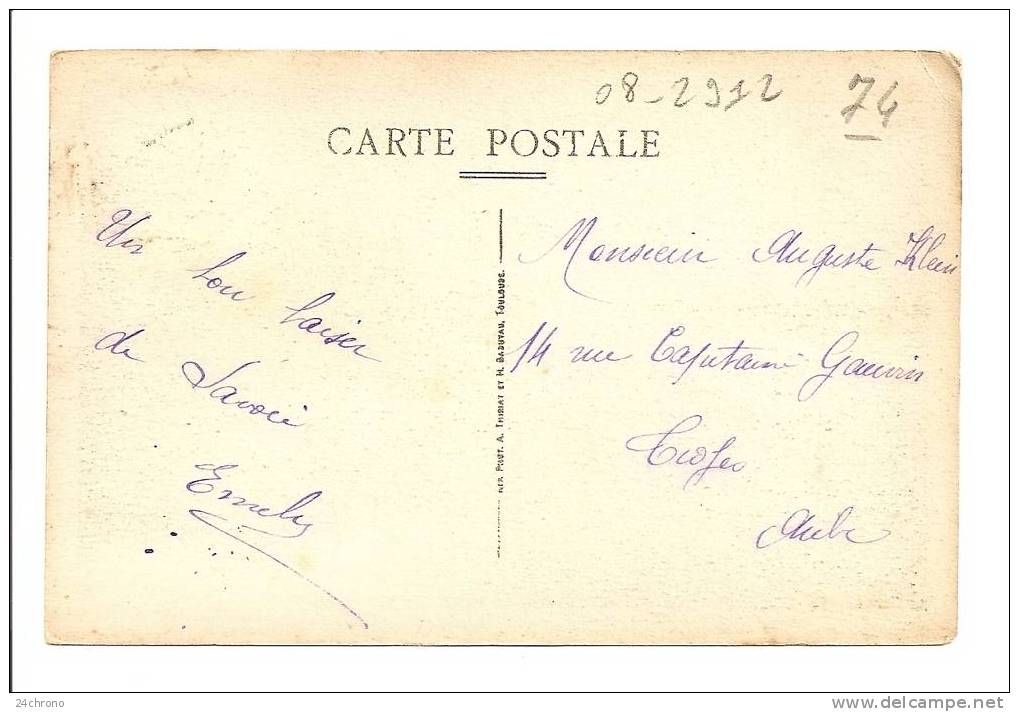 08-2912
74
CARTE POSTALE
Un bon baiser
de Savoie
Emely
PHOT. A. THIRIAT ET H. BASUYAU, TOULOUSE.
Monsieur Auguste Klein
14 rue Capitaine Gauvin
Troyes
Aube
24chrono
www.delcampe.net